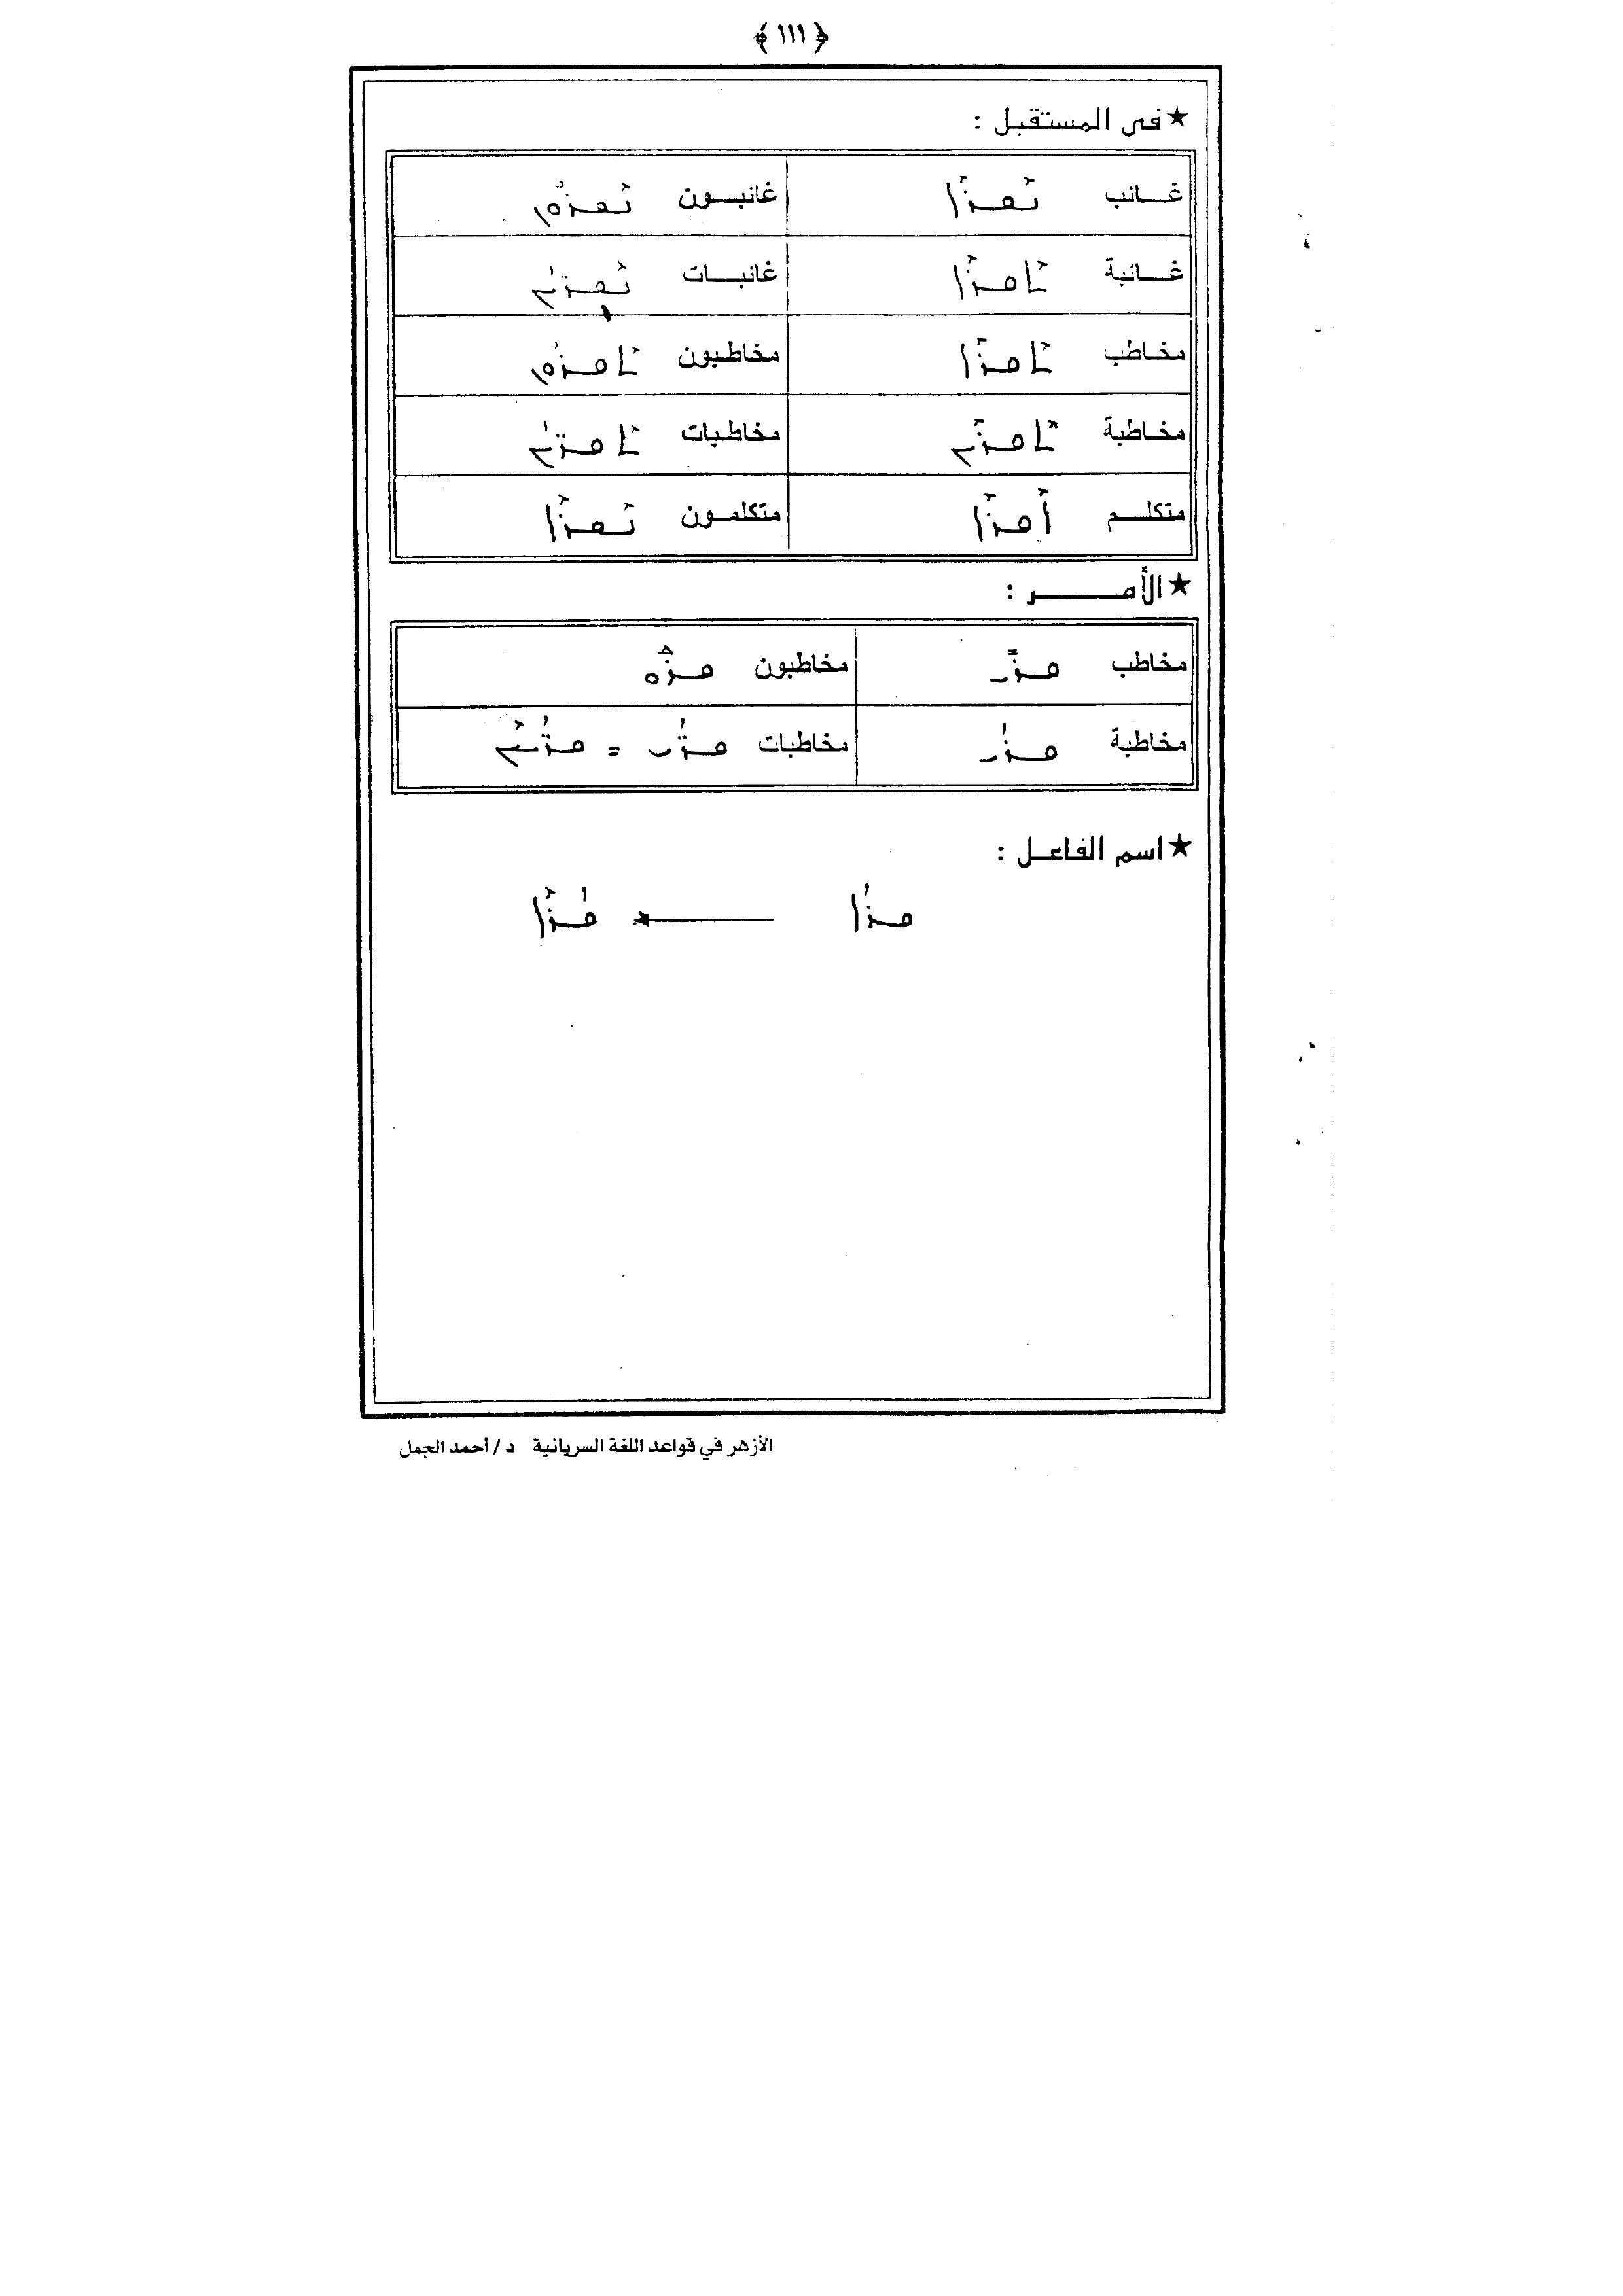 ﴿ ١١١ ﴾
★ في المستقبل :
غائب ܢܶܩܪܶܐ غائبون ܢܶܩܪܽܘܢ
غائبة ܬܶܩܪܶܐ غائبات ܢܶܩܪ̈ܝܳܢ
مخاطب ܬܶܩܪܶܐ مخاطبون ܬܶܩܪܽܘܢ
مخاطبة ܬܶܩܪܶܝܢ مخاطبات ܬܶܩܪ̈ܝܳܢ
متكلم ܐܶܩܪܶܐ متكلمون ܢܶܩܪܶܐ
★ الأمر :
مخاطب ܩܪܺܝ مخاطبون ܩܪܰܘ
مخاطبة ܩܪܳܝ مخاطبات ܩܪ̈ܳܝ = ܩܪ̈ܳܝܶܝܢ
★ اسم الفاعل :
ܩܪܳܐ ← ܩܳܪܶܐ
الأزهر في قواعد اللغة السريانية د/أحمد الجمل